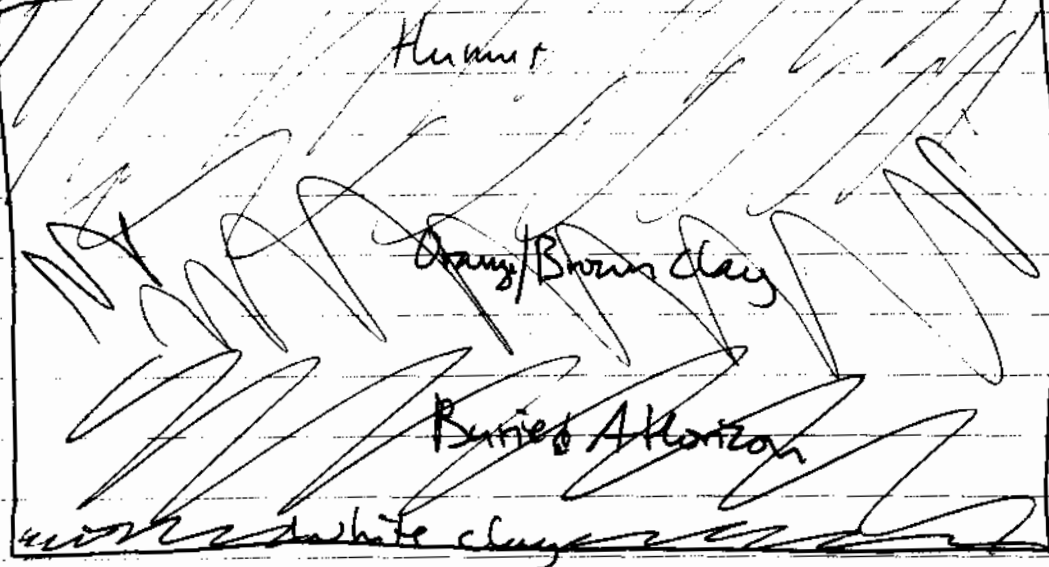 Humus
Orange/Brown Clay
Buried A Horizon
white clay